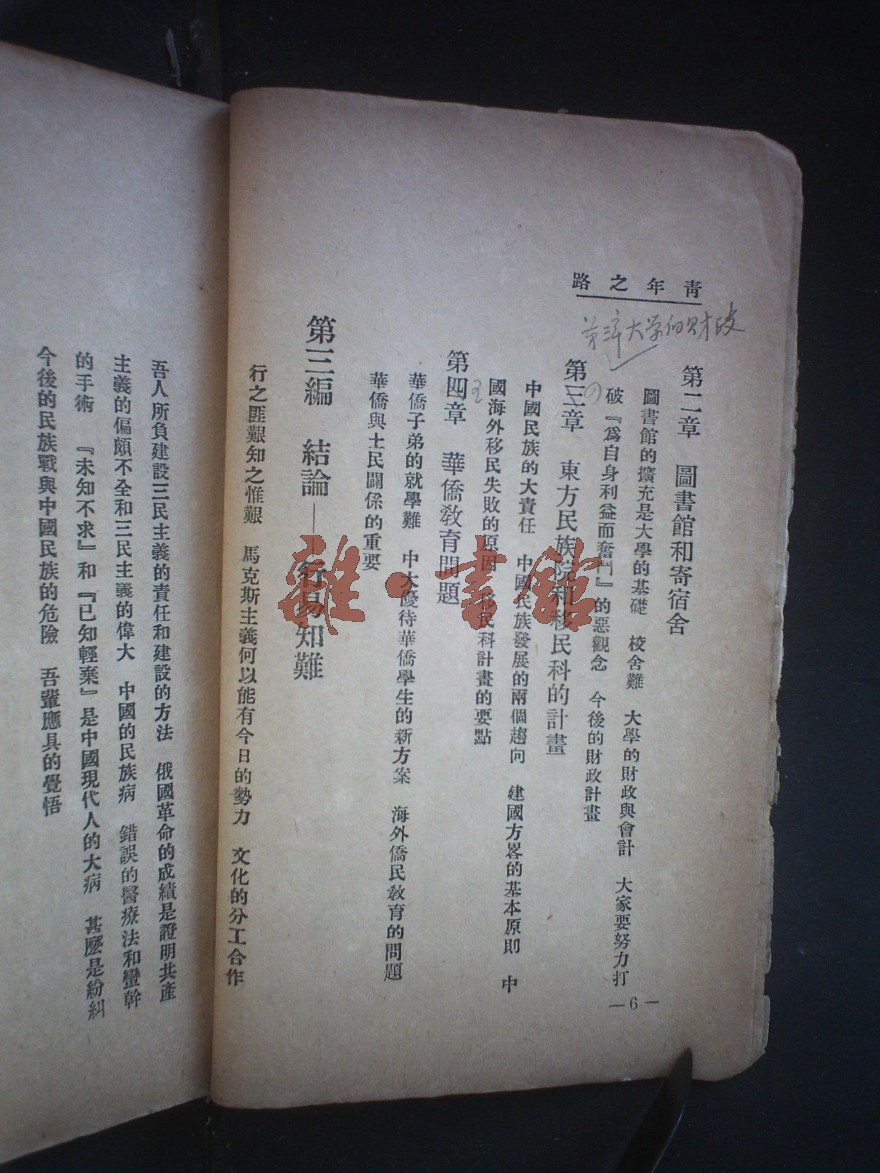 路之年青
第三章 大学的财政
第二章　圖書館和寄宿舍
圖書館的擴充是大學的基礎　校舍難　大學的財政與會計　大家要努力打
破『爲自身利益而奮鬥』的惡觀念　今後的財政計畫
第三章　東方民族院和移民科的計畫
中國民族的大責任　中國民族發展的兩個趨向　建國方畧的基本原則　中
國海外移民失敗的原因　移民科計畫的要點
第四章　華僑敎育問題
華僑子弟的就學難　中大優待華僑學生的新方案　海外僑民敎育的問題
華僑與土民關係的重要
第三編　結論——行易知難
行之匪艱知之惟艱　馬克斯主義何以能有今日的勢力　文化的分工合作
—6—
吾人所負建設三民主義的責任和建設的方法　俄國革命的成績是證明共產
主義的偏頗不全和三民主義的偉大　中國的民族病　錯誤的醫療法和蠻幹
的手術　『未知不求』和『已知輕棄』是中國現代人的大病　甚麽是紛糾
今後的民族戰與中國民族的危險　吾輩應具的覺悟
雜·書館